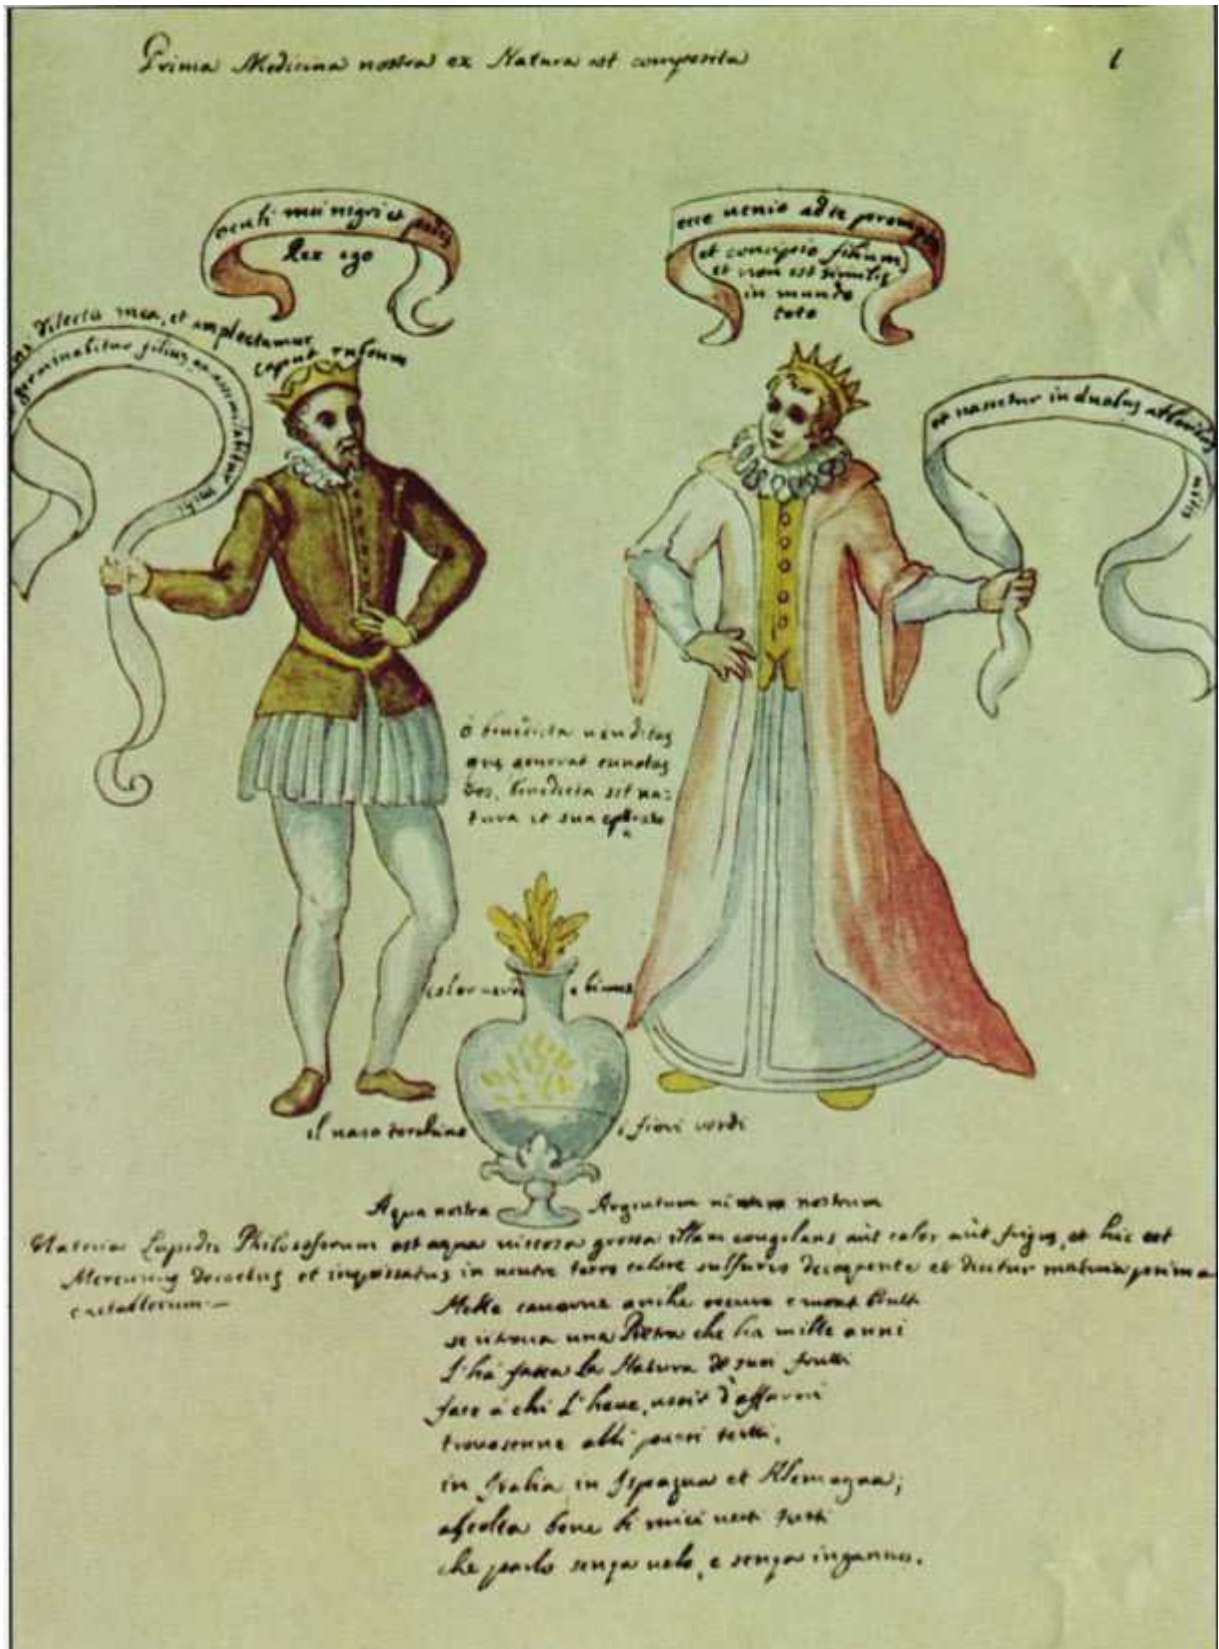 Prima Medicina nostra ex Natura est composita
1
oculi mei nigri et pedes
Rex ego
ecce uenio ad te
et concipio filium
et non est similis
in mundo
toto
dilecta mea, et amplectamur
caput rufeum
germinabitur filius, et assimilabitur mihi
nascetur in duobus
o benedicta uiriditas
que generat cunctas
res, benedicta sit na:
tura et sua
color nero e
il uaso i fiori verdi
Aqua nostra Argentum nostrum
Materia Lapidis Philosoforum est aqua uiscosa grossa illam congelans aut calor aut frigus, et hic est
Mercurius decoctus et inspissatus in uentre terre calore sulfureo decoquente et dicitur materia prima
metallorum:—
Nelle cauerne anche oscure e
se ritroua una Pietra che ha mille anni
l'hà fatta la Natura de suoi frutti
face à chi l'haue, uscir d'affanni
in Italia in Ispagna et Alemagna;
ascolta bene li miei uersi tutti
che parlo senza uelo, e senza inganno.